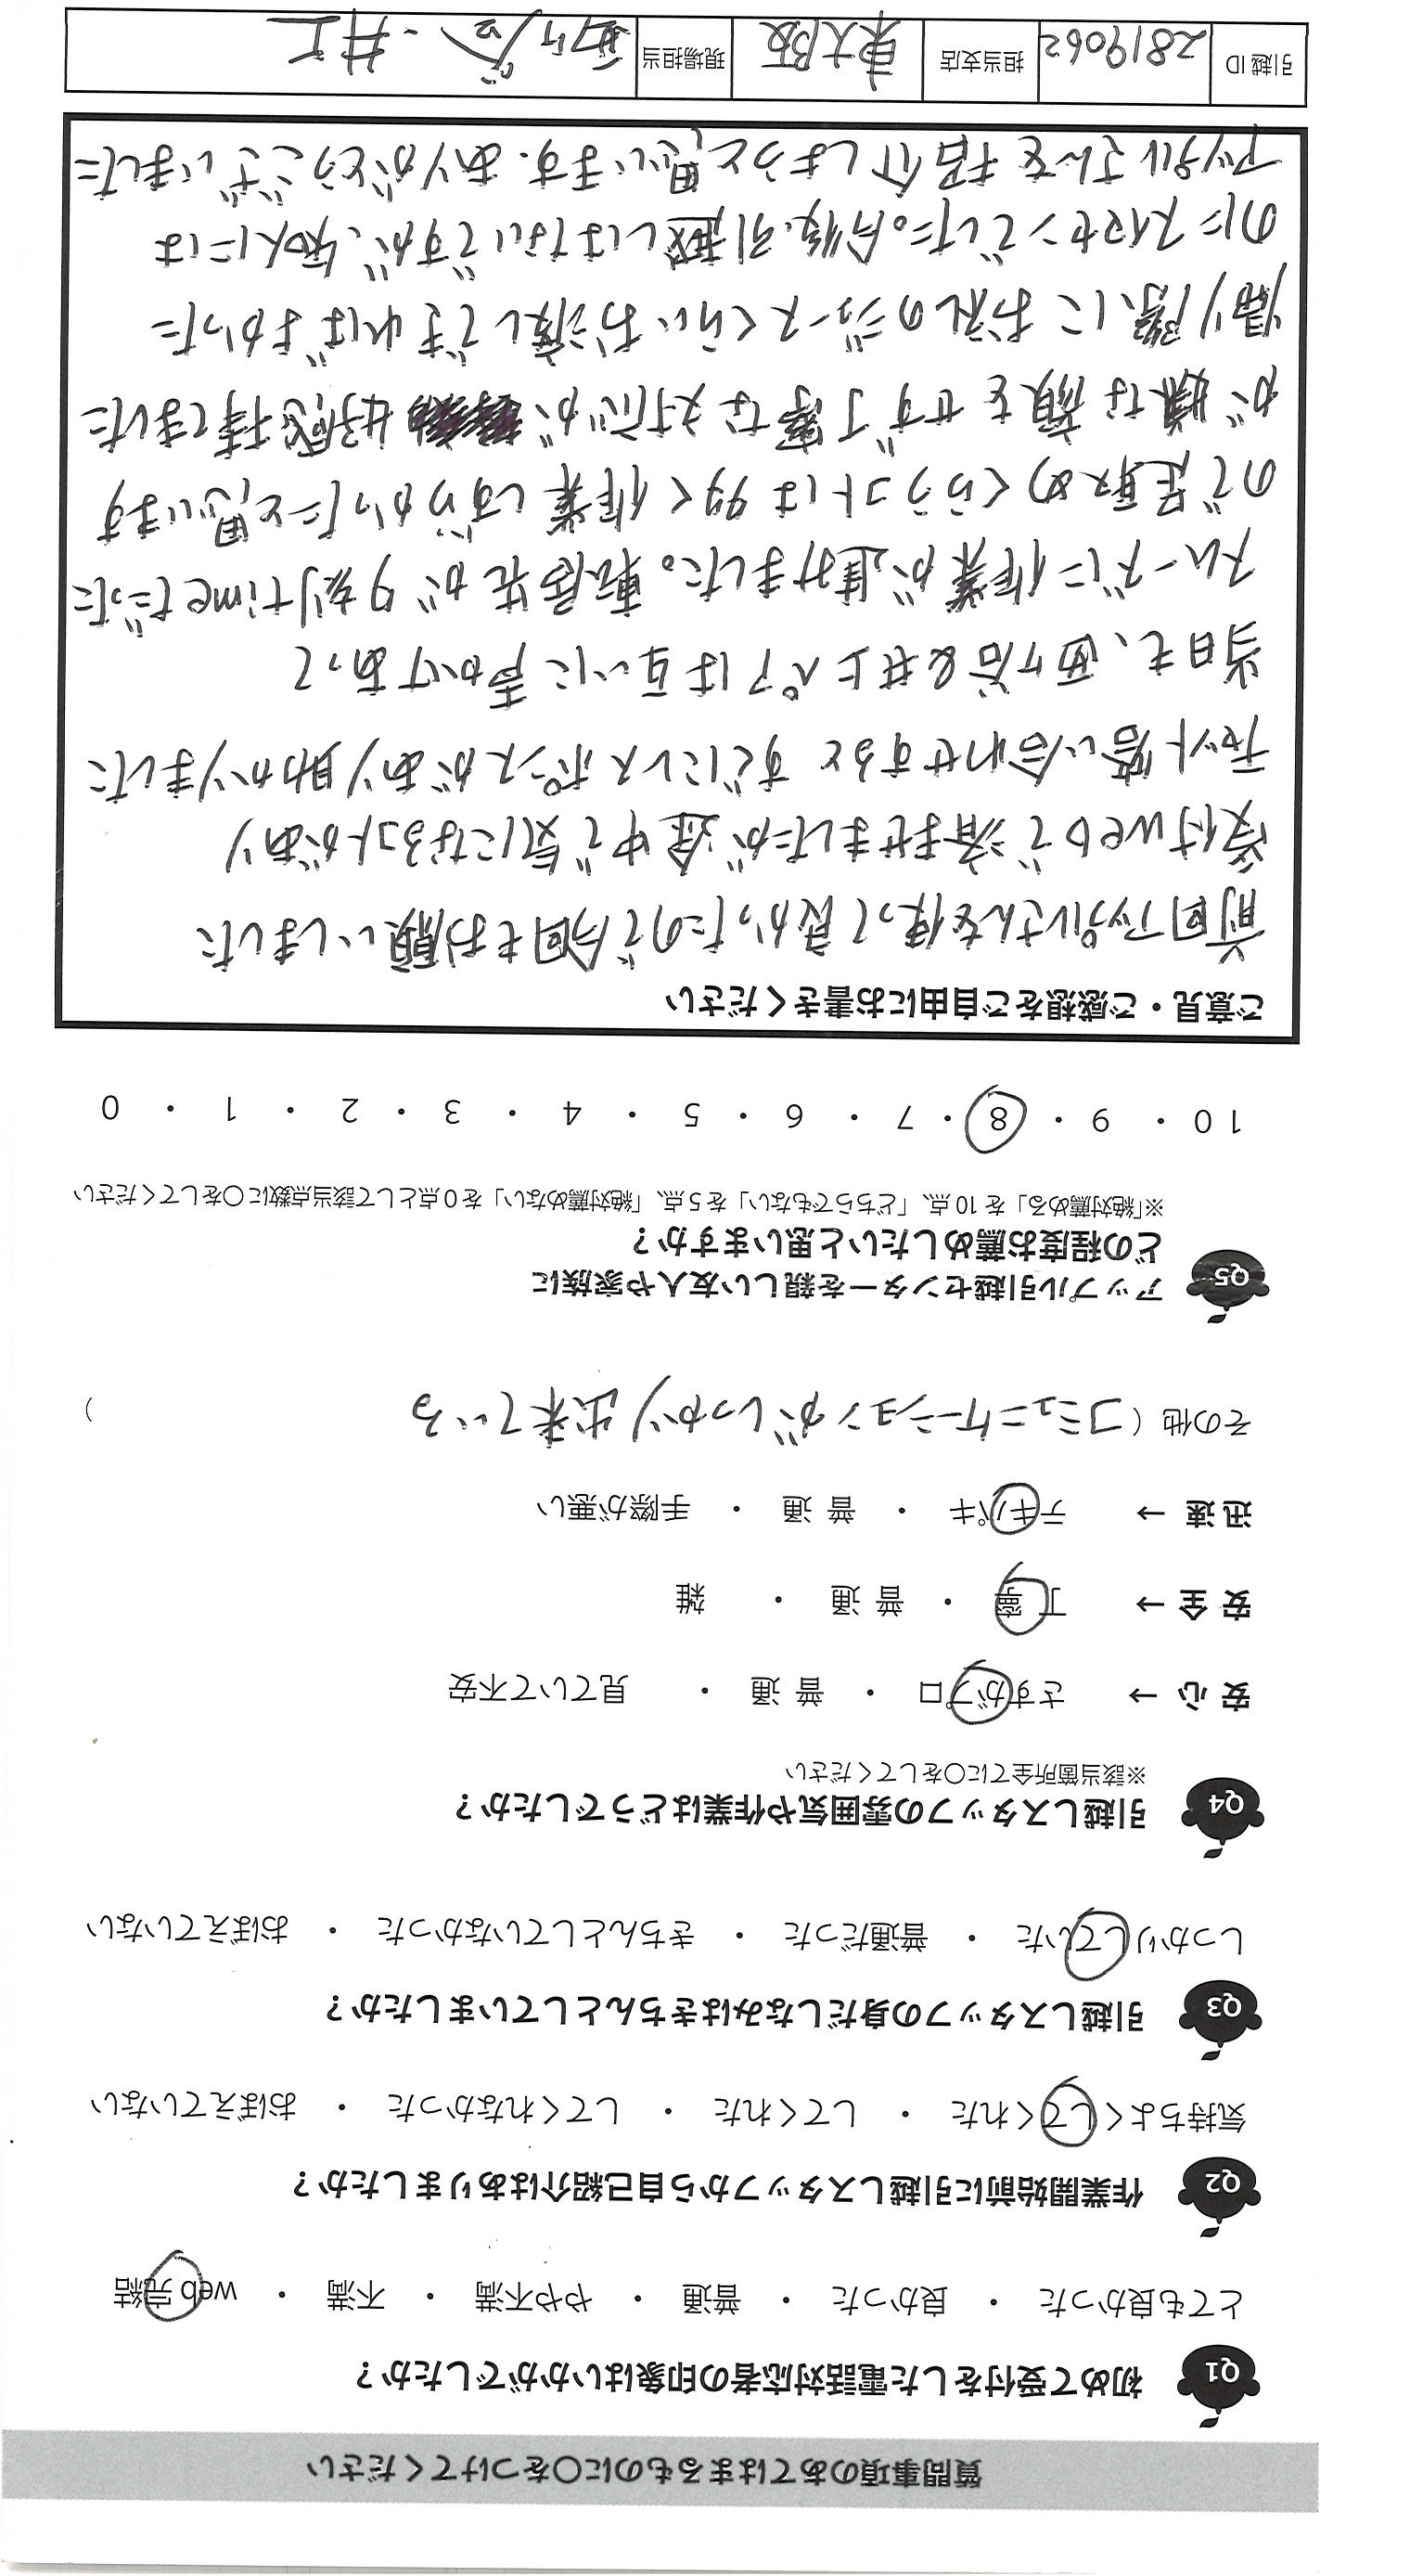 質問事項のあてはまるものに○をつけてください
Q1 初めて受付をした電話対応者の印象はいかがでしたか？
とても良かった ・ 良かった ・ 普通 ・ やや不満 ・ 不満 ・ web 完結
Q2 作業開始前に引越しスタッフから自己紹介はありましたか？
気持ちよくしてくれた ・ してくれた ・ してくれなかった ・ おぼえていない
Q3 引越しスタッフの身だしなみはきちんとしていましたか？
しっかりしていた ・ 普通だった ・ きちんとしていなかった ・ おぼえていない
Q4 引越しスタッフの雰囲気や作業はどうでしたか？
※該当箇所全てに○をしてください
安心 → さすがプロ ・ 普通 ・ 見ていて不安
安全 → 丁寧 ・ 普通 ・ 雑
迅速 → テキパキ ・ 普通 ・ 手際が悪い
その他（コミュニケーションがしっかり出来ている）
Q5 アップル引越センターを親しい友人や家族に
どの程度お薦めしたいと思いますか？
※「絶対薦める」を 10 点、「どちらでもない」を 5 点、「絶対薦めない」を 0 点として該当点数に○をしてください
10 ・ 9 ・ 8 ・ 7 ・ 6 ・ 5 ・ 4 ・ 3 ・ 2 ・ 1 ・ 0
ご意見・ご感想をご自由にお書きください
前回アップルさんを使って良かったので今回もお願いしました
受付webで済ませましたが途中で気になるコトがあり
チャット問い合わせするとすぐにレスポンスがあり助かりました
当日も、西ケ谷&井上ペアは互いに声かけあって
スムーズに作業が進みました。転居先が夕刻timeだった
ので足取めくらうコトは多く作業しずらかったと思います
が嫌な顔をせず丁寧な対応が好感持てました
帰り際にお礼のジュースくらいお渡しできればよかった
のにスイマセンでした。今後、引越しはないですが、知人には
アップルさんを紹介しようと思います。ありがとうございました
引越 ID 2819062 担当支店 東大阪 現場担当 井上